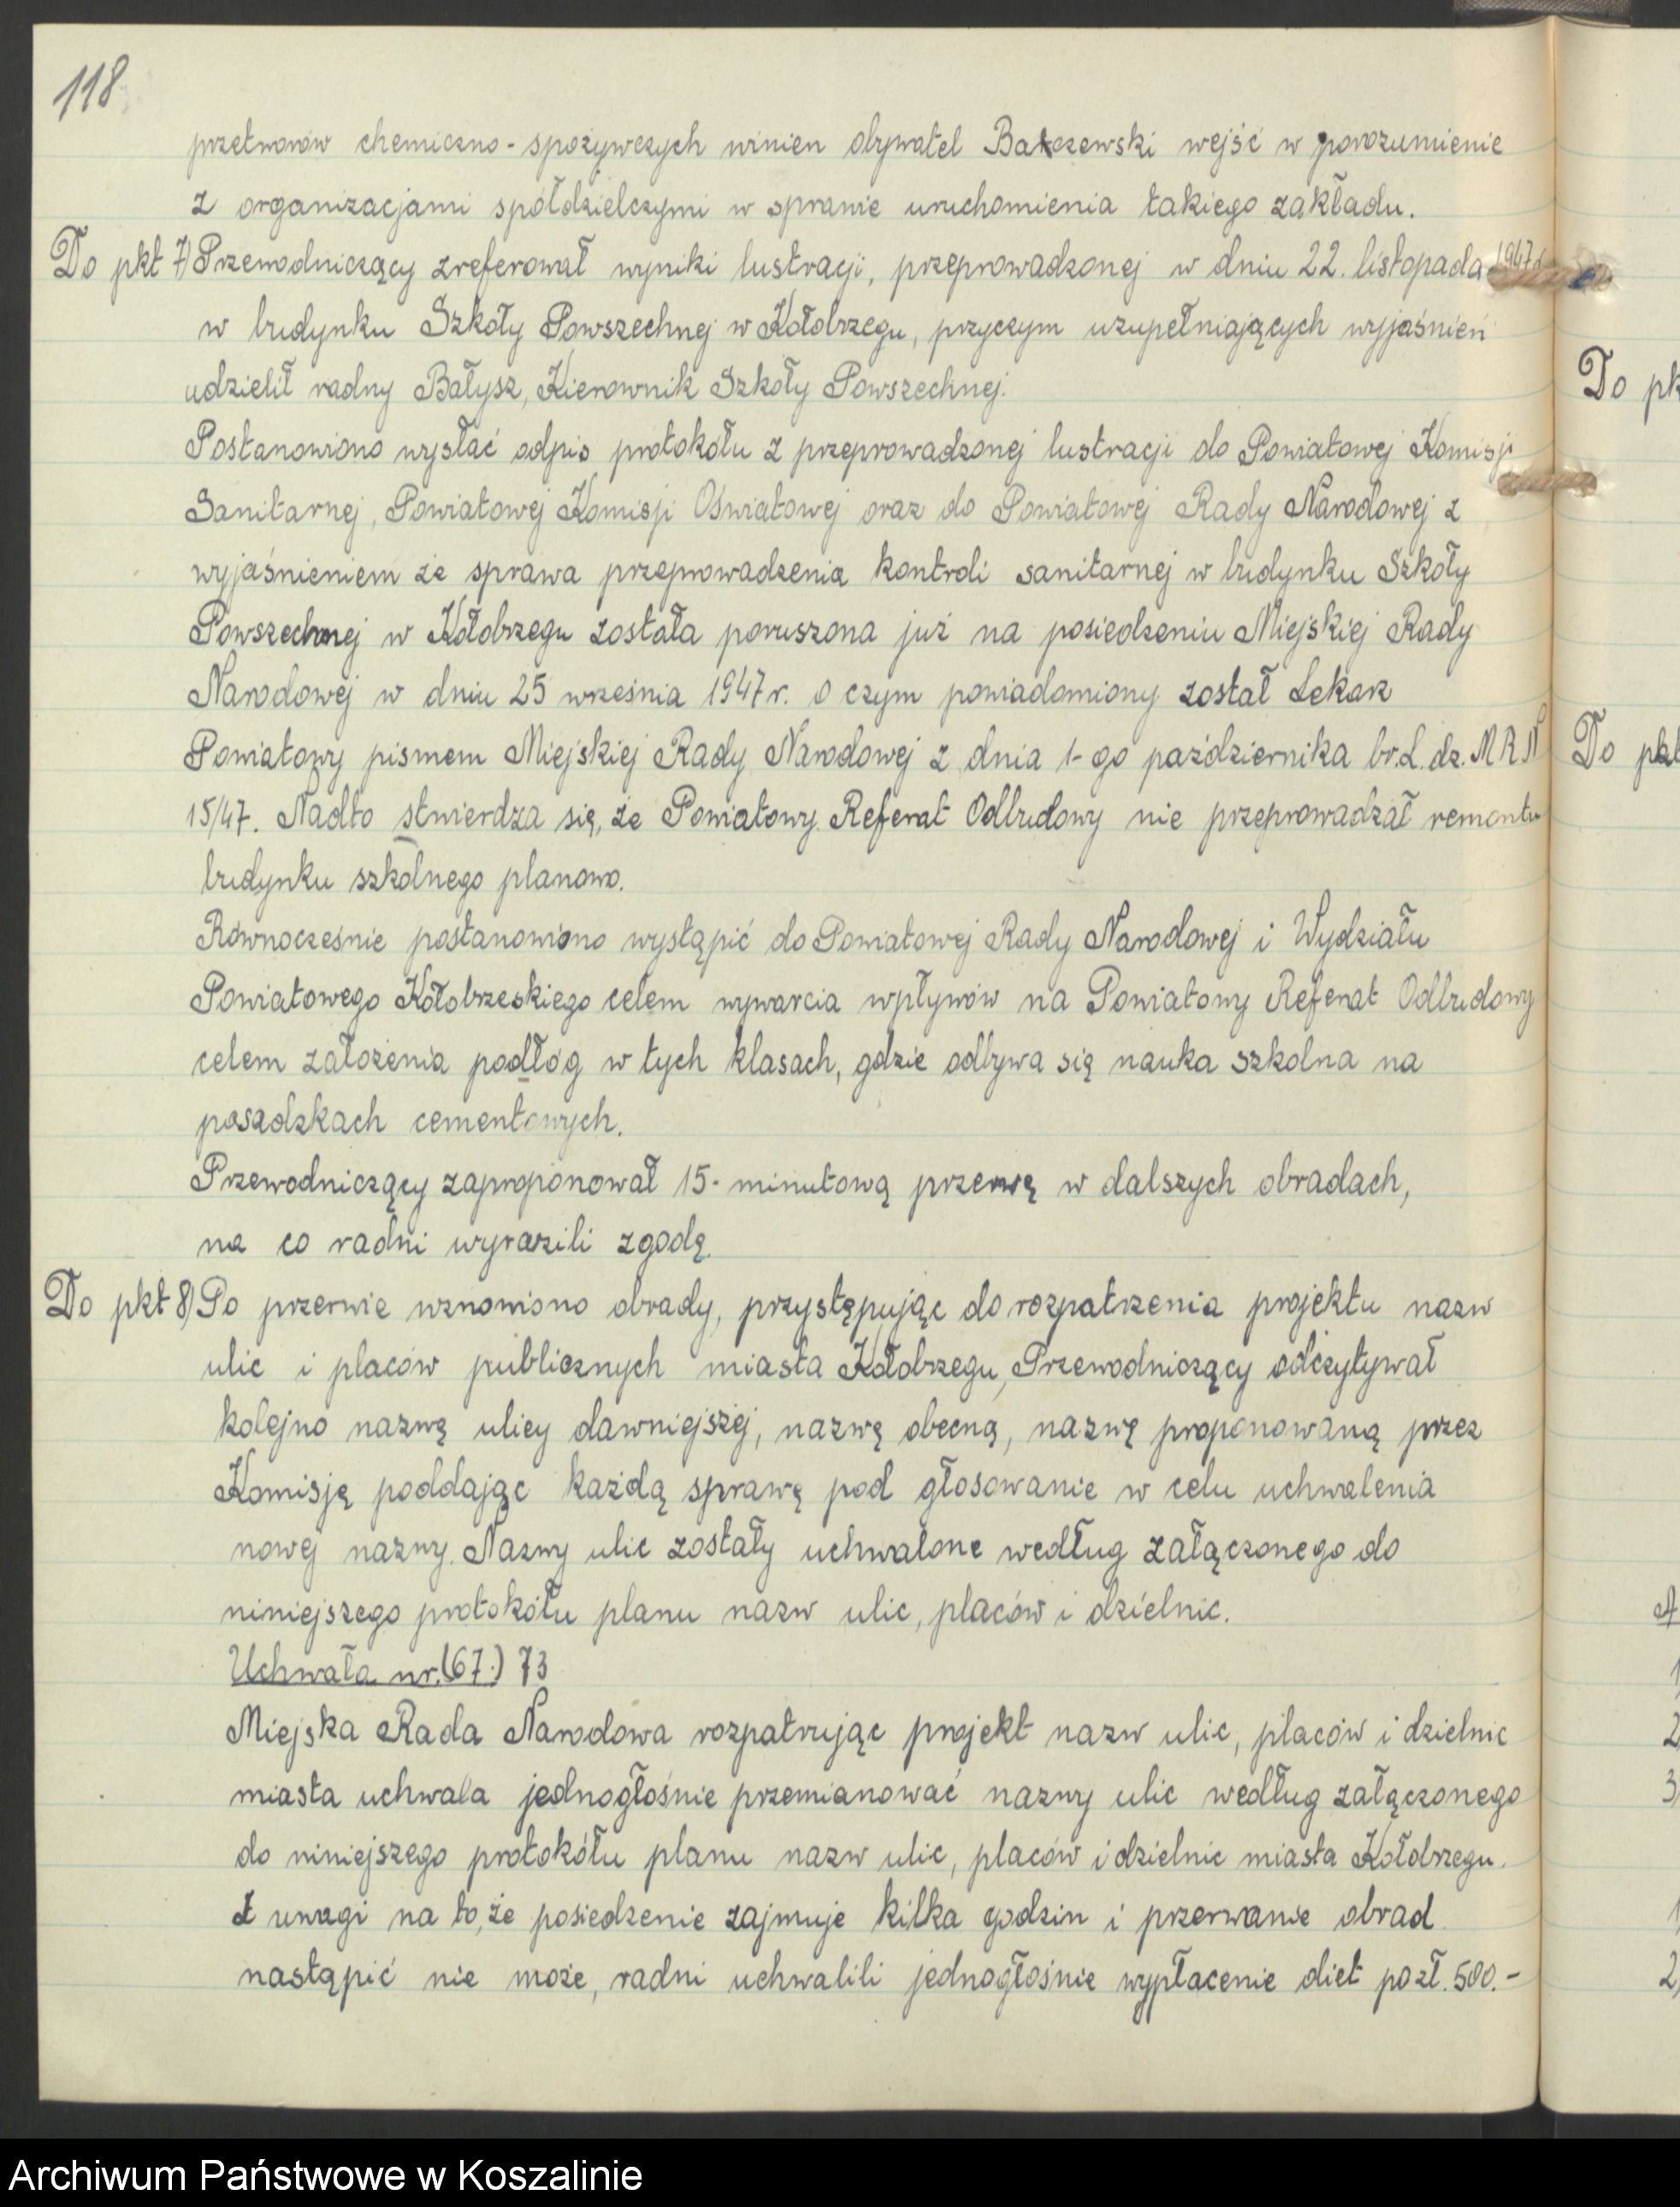 118
przetworów chemiczno-spożywczych winien obywatel Bakczewski wejść w porozumienie
z organizacjami spółdzielczymi w sprawie uruchomienia takiego zakładu.
Do pkt 7) Przewodniczący zreferował wyniki lustracji, przeprowadzonej w dniu 22. listopada 1947 r.
w budynku Szkoły Powszechnej w Kołobrzegu, przyczym uzupełniających wyjaśnień
udzielił radny Bałysz, Kierownik Szkoły Powszechnej.
Postanowiono wysłać odpis protokołu z przeprowadzonej lustracji do Powiatowej Komisji
Sanitarnej, Powiatowej Komisji Oświatowej oraz do Powiatowej Rady Narodowej z
wyjaśnieniem że sprawa przeprowadzenia kontroli sanitarnej w budynku Szkoły
Powszechnej w Kołobrzegu została poruszona już na posiedzeniu Miejskiej Rady
Narodowej w dniu 25 września 1947 r. o czym powiadomiony został Lekarz
Powiatowy pismem Miejskiej Rady Narodowej z dnia 1-go października br. L. dz. M R N
15/47. Nadto stwierdza się, że Powiatowy Referat Odbudowy nie przeprowadzał remontu
budynku szkolnego planowo.
Równocześnie postanowiono wystąpić do Powiatowej Rady Narodowej i Wydziału
Powiatowego Kołobrzeskiego celem wywarcia wpływów na Powiatowy Referat Odbudowy
celem założenia podłóg w tych klasach, gdzie odbywa się nauka szkolna na
posadzkach cementowych.
Przewodniczący zaproponował 15-minutową przerwę w dalszych obradach,
na co radni wyrazili zgodę.
Do pkt 8) Po przerwie wznowiono obrady, przystępując do rozpatrzenia projektu nazw
ulic i placów publicznych miasta Kołobrzegu, Przewodniczący odczytywał
kolejno nazwę ulicy dawniejszej, nazwę obecną, nazwę proponowaną przez
Komisję poddając każdą sprawę pod głosowanie w celu uchwalenia
nowej nazwy. Nazwy ulic zostały uchwalone według załączonego do
niniejszego protokółu planu nazw ulic, placów i dzielnic.
Uchwała nr. (67.) 73
Miejska Rada Narodowa rozpatrując projekt nazw ulic, placów i dzielnic
miasta uchwala jednogłośnie przemianować nazwy ulic według załączonego
do niniejszego protokółu planu nazw ulic, placów i dzielnic miasta Kołobrzegu.
Z uwagi na to, że posiedzenie zajmuje kilka godzin i przerwanie obrad
nastąpić nie może, radni uchwalili jednogłośnie wypłacenie diet po zł. 500.-
Do pk
Do pkt
1
2
3
1
2
Archiwum Państwowe w Koszalinie